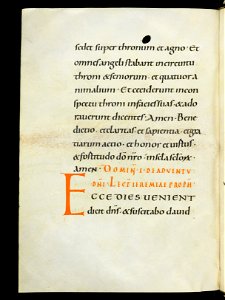 sedet super thronum et agno · Et
omnes angeli stabant in circuitu
throni & seniorum · et quatuor a
nimalium · Et ceciderunt in con
spectu throni in facies suas · & ado
rauerunt dicentes · Amen · Bene
dictio · et claritas et sapientia · et gra
tiarum actio · et honor et uirtus ·
& fortitudo dō nrō · in scła scłorx ·
amen · DOMIN · I · DE ADVENTV
DNI · LEC̄ IEREMIAE PROPH
ECCE DIES VENIENT
dicit dn̄s · & suscitabo dauid